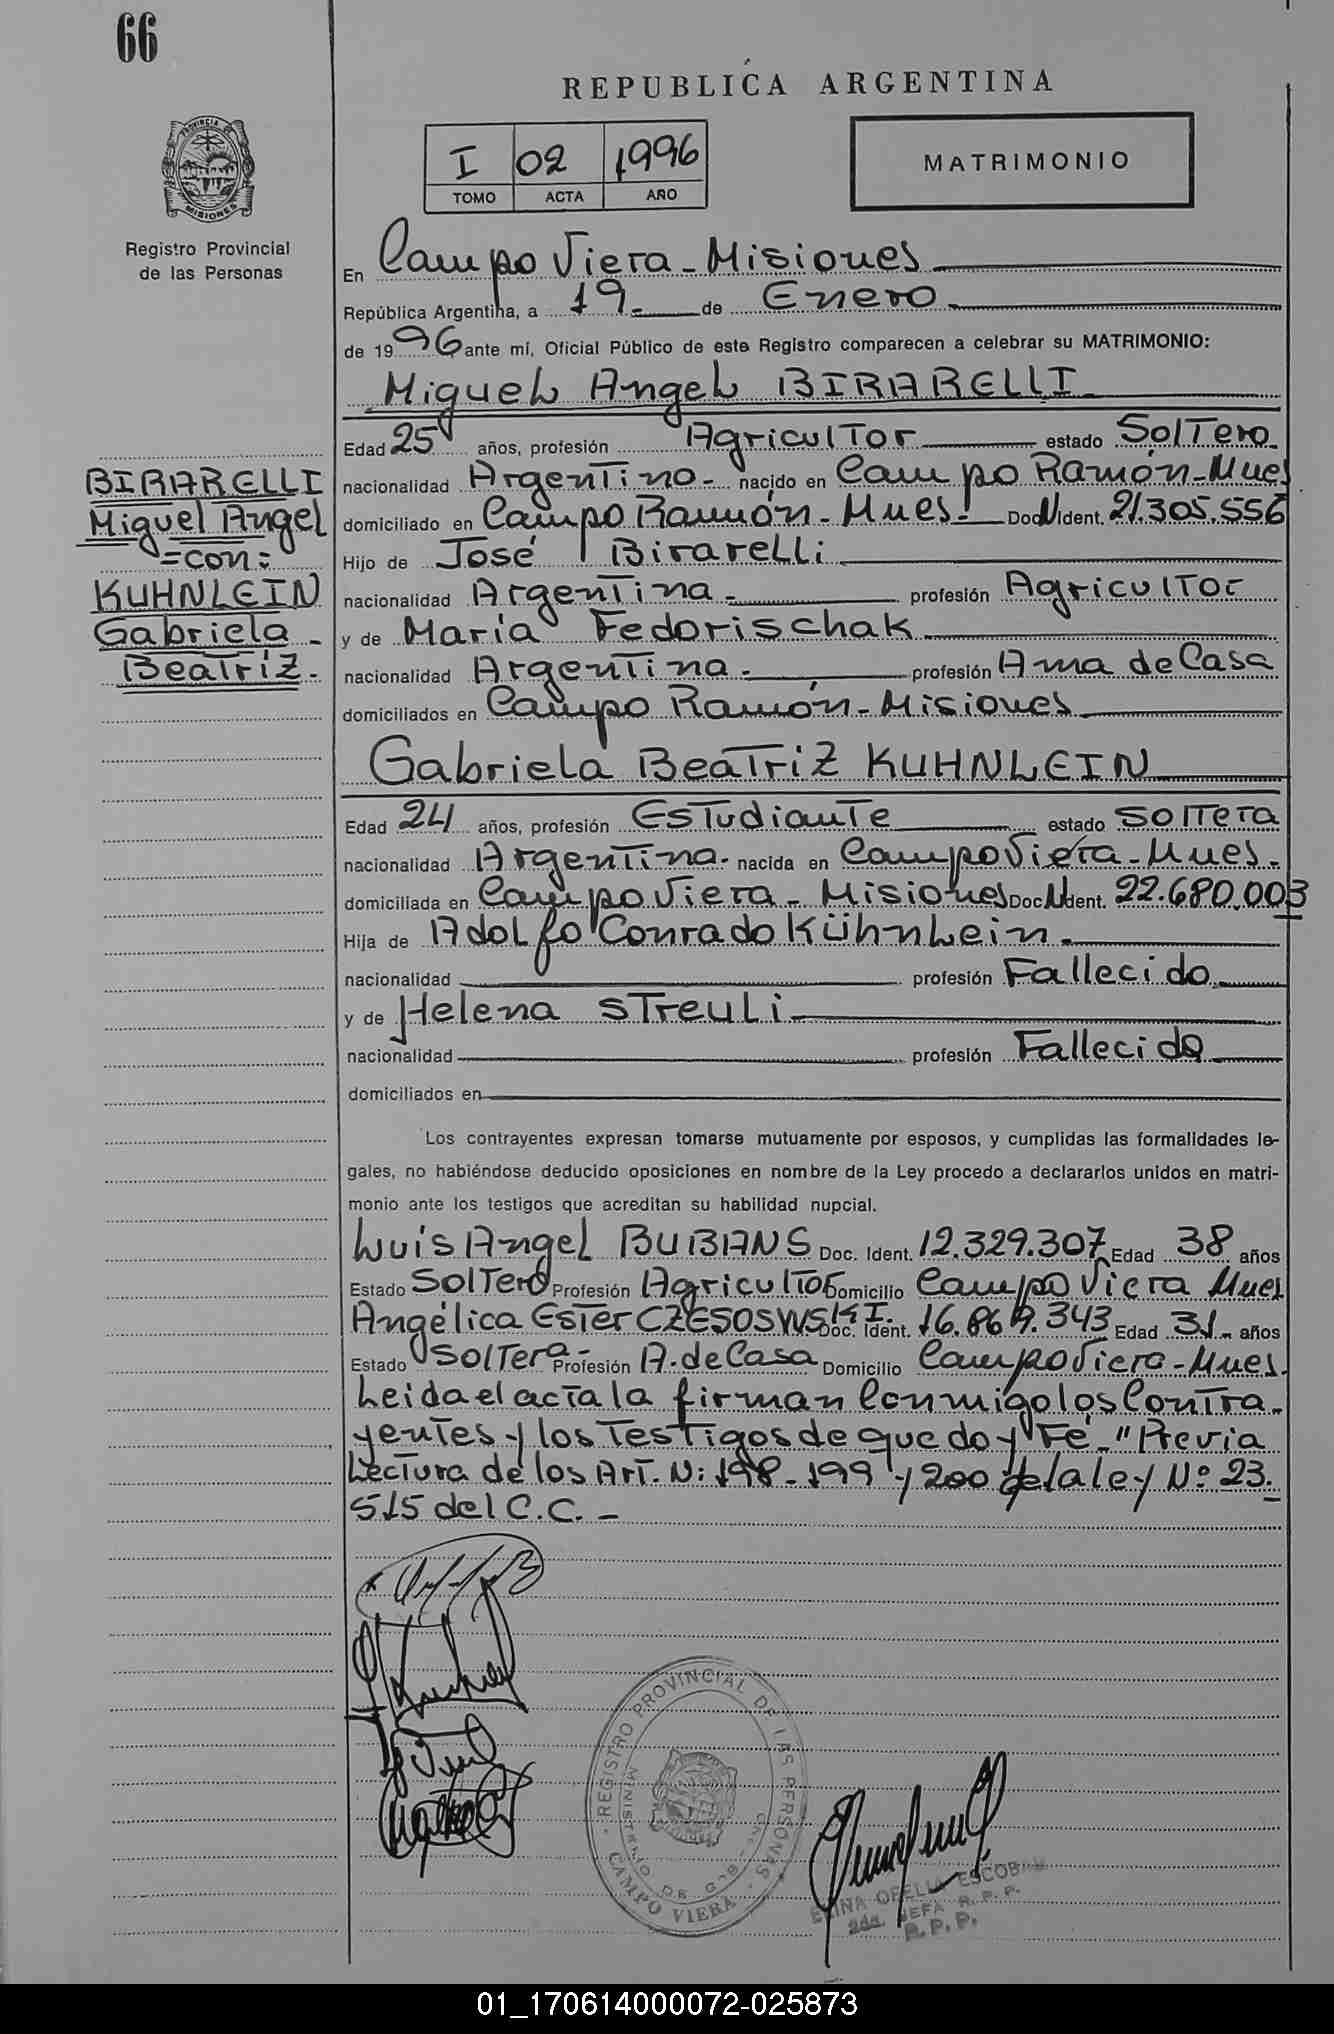 66
REPUBLICA ARGENTINA
I 02 1996
TOMO ACTA AÑO
MATRIMONIO
PROVINCIA DE
MISIONES
Registro Provincial
de las Personas
En Campo Viera - Misiones
República Argentina, a 19.- de Enero.-
de 1996 ante mí, Oficial Público de este Registro comparecen a celebrar su MATRIMONIO:
Miguel Angel BIRARELLI
Edad 25 años, profesión Agricultor estado Soltero
nacionalidad Argentino.- nacido en Campo Ramón-Mnes
domiciliado en Campo Ramón - Mnes. Doc N Ident. 21.305.556
Hijo de José Birarelli
nacionalidad Argentina.- profesión Agricultor
y de María Fedorischak
nacionalidad Argentina.- profesión Ama de Casa
domiciliados en Campo Ramón - Misiones
BIRARELLI
Miguel Angel
=con:
KUHNLEIN
Gabriela -
Beatríz.-
Gabriela Beatriz KUHNLEIN
Edad 24 años, profesión Estudiante estado soltera
nacionalidad Argentina.- nacida en Campo Viera - Mnes.
domiciliada en Campo Viera - Misiones Doc N Ident. 22.680.003
Hija de Adolfo Conrado Kühnlein.-
nacionalidad profesión Fallecido
y de Helena Streuli
nacionalidad profesión Fallecida
domiciliados en
Los contrayentes expresan tomarse mutuamente por esposos, y cumplidas las formalidades le-
gales, no habiéndose deducido oposiciones en nombre de la Ley procedo a declararlos unidos en matri-
monio ante los testigos que acreditan su habilidad nupcial.
Luis Angel BUBANS Doc. Ident. 12.329.307 Edad 38 años
Estado Soltero Profesión Agricultor Domicilio Campo Viera Mnes
Angélica Ester CZESOSWSKI. Doc. Ident. 16.869.343 Edad 31.- años
Estado Soltera- Profesión A. de Casa Domicilio Campo Viera - Mnes.
Leida el acta la firman Conmigo los Contra-
yentes y los Testigos de que doy Fé.- "Previa
Lectura de los Art. N: 198-199 y 200 de la ley Nº 23.
515 del C.C.-
REGISTRO PROVINCIAL DE LAS PERSONAS
MINISTERIO DE GOB.
CAMPO VIERA
OFELIA ESCOBAR
2da. JEFA R.P.P.
R.P.P.
01_170614000072-025873